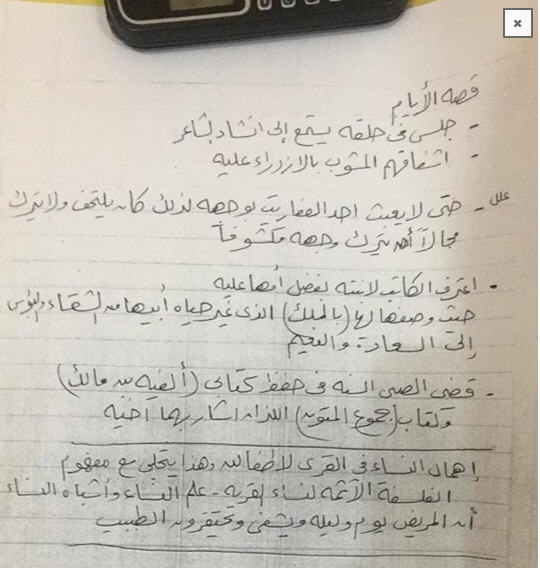 قصه الأيام
- جلس فى حلقه يستمع إلى انشاد الشاعر
- اشفاقهم المشوب بالازدراء عليه
علل - حتى لا يعبث احد العفاريت بوجهه لذلك كان يلتحف ولا يترك
مجالاً أحد يترك وجهه مكشوفاً
• اعترف الكاتب لابنته بفضل أمها عليه
حيث وصفها لها (بالملك) الذى غير حياه أبيها من الشقاء والبؤس
إلى السعادة والنعيم
- قضى الصبى السنه فى حفظ كتابى (ألفيه بن مالك)
وكتاب (مجموع المتون) اللذان اشار بهما اخيه
إهمال النساء فى القرى للأطفال وهذا يتجلى مع مفهوم
الفلسفة الآثمه لنساء القريه - علم النساء وأشباه النساء
أن المريض يوم وليله ويشفى ويحتقرون الطبيب